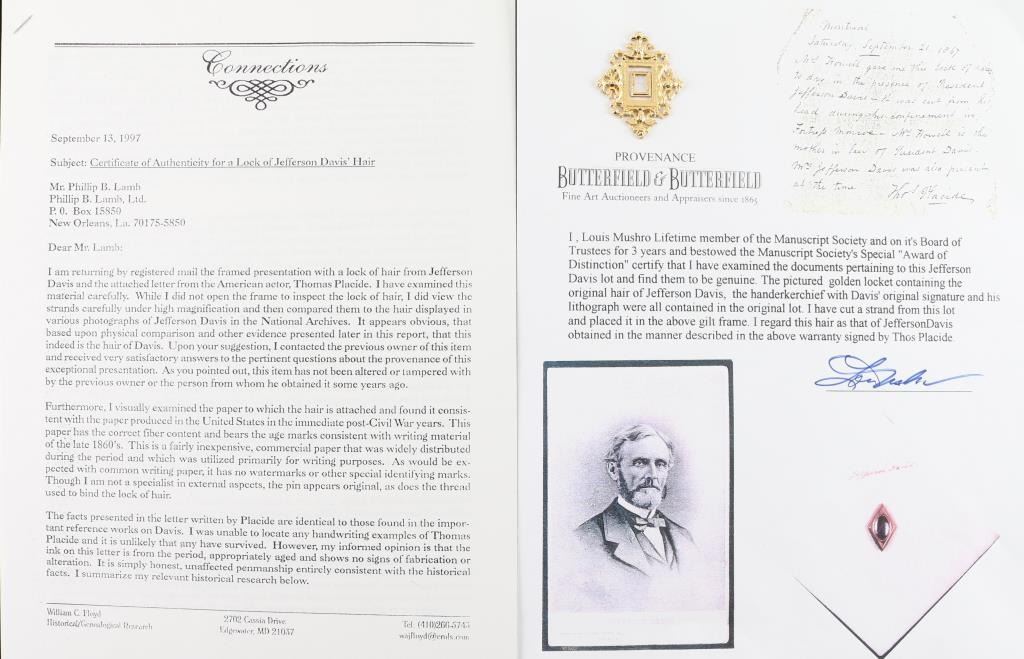 Connections
September 13, 1997
Subject: Certificate of Authenticity for a Lock of Jefferson Davis' Hair
Mr. Phillip B. Lamb
Phillip B. Lamb, Ltd.
P. 0. Box 15850
New Orleans, La. 70175-5850
Dear Mr. Lamb:
I am returning by registered mail the framed presentation with a lock of hair from Jefferson
Davis and the attached letter from the American actor, Thomas Placide. I have examined this
material carefully. While I did not open the frame to inspect the lock of hair, I did view the
strands carefully under high magnification and then compared them to the hair displayed in
various photographs of Jefferson Davis in the National Archives. It appears obvious, that
based upon physical comparison and other evidence presented later in this report, that this
indeed is the hair of Davis. Upon your suggestion, I contacted the previous owner of this item
and received very satisfactory answers to the pertinent questions about the provenance of this
exceptional presentation. As you pointed out, this item has not been altered or tampered with
by the previous owner or the person from whom he obtained it some years ago.
Furthermore, I visually examined the paper to which the hair is attached and found it consis-
tent with the paper produced in the United States in the immediate post-Civil War years. This
paper has the correct fiber content and bears the age marks consistent with writing material
of the late 1860's. This is a fairly inexpensive, commercial paper that was widely distributed
during the period and which was utilized primarily for writing purposes. As would be ex-
pected with common writing paper, it has no watermarks or other special identifying marks.
Though I am not a specialist in external aspects, the pin appears original, as does the thread
used to bind the lock of hair.
The facts presented in the letter written by Placide are identical to those found in the impor-
tant reference works on Davis. I was unable to locate any handwriting examples of Thomas
Placide and it is unlikely that any have survived. However, my informed opinion is that the
ink on this letter is from the period, appropriately aged and shows no signs of fabrication or
alteration. It is simply honest, unaffected penmanship entirely consistent with the historical
facts. I summarize my relevant historical research below.
William C. Floyd
Historical/Genealogical Research
2702 Cassia Drive
Edgewater, MD 21037
Tel: (410)266-5745
wajfloyd@erols.com
Montreal
Saturday, September 21. 1867
Mrs Howell gave me this lock of hair
to day, in the presence of President
Jefferson Davis - it was cut from his
head during his confinement in
Fortress Monroe - Mrs Howell is the
mother in law of President Davis -
Mrs Jefferson Davis was also present
at the time
Thos Placide
PROVENANCE
BUTTERFIELD & BUTTERFIELD
Fine Art Auctioneers and Appraisers since 1865
I , Louis Mushro Lifetime member of the Manuscript Society and on it's Board of
Trustees for 3 years and bestowed the Manuscript Society's Special "Award of
Distinction" certify that I have examined the documents pertaining to this Jefferson
Davis lot and find them to be genuine. The pictured golden locket containing the
original hair of Jefferson Davis, the handerkerchief with Davis' original signature and his
lithograph were all contained in the original lot. I have cut a strand from this lot
and placed it in the above gilt frame. I regard this hair as that of JeffersonDavis
obtained in the manner described in the above warranty signed by Thos Placide.
Jefferson Davis